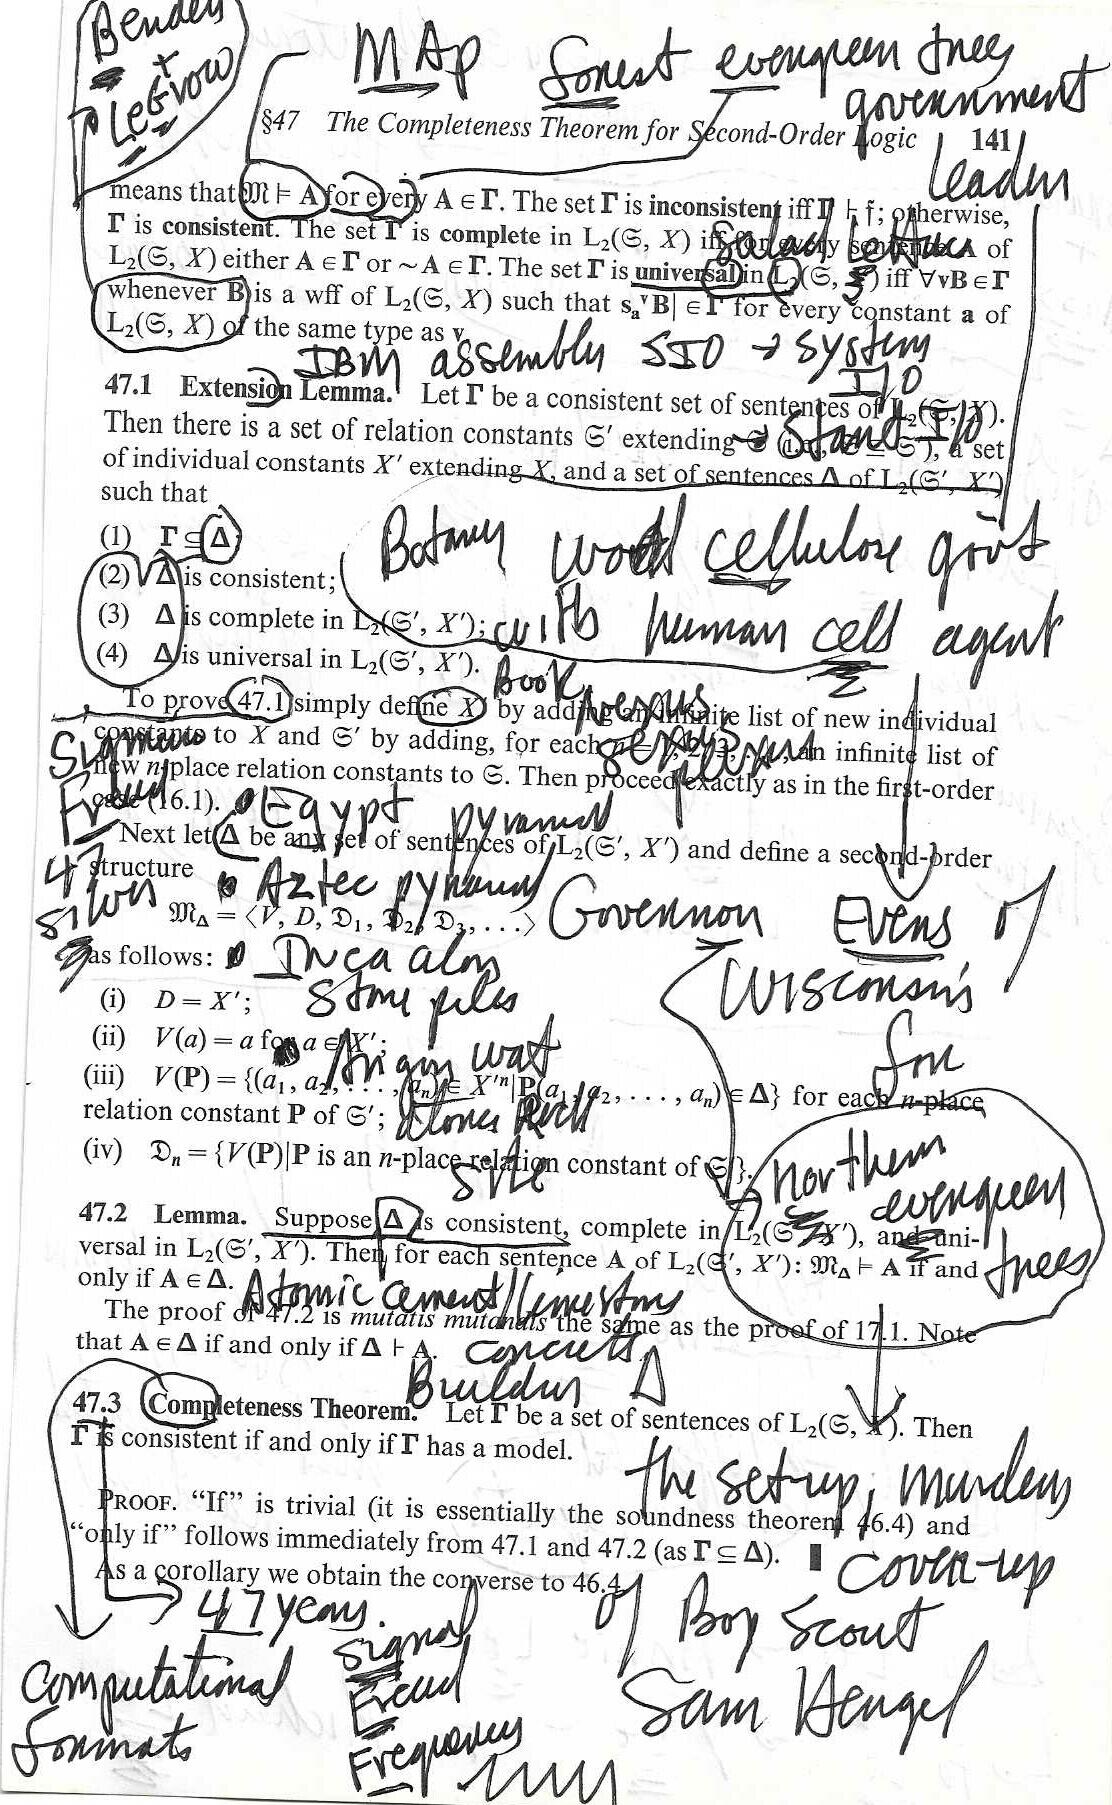 Bender
+
LeGrow
MAp forest evergreen trees
government
§47 The Completeness Theorem for Second-Order Logic 141
leader
means that 𝔐 ⊨ A for every A ∈ Γ. The set Γ is inconsistent iff Γ ⊢ f; otherwise,
Γ is consistent. The set Γ is complete in L₂(𝔖, X) iff for every sentence A of
salad lettuce
L₂(𝔖, X) either A ∈ Γ or ~A ∈ Γ. The set Γ is universal in L₂(𝔖, X) iff ∀vB ∈ Γ
whenever B is a wff of L₂(𝔖, X) such that sₐᵛB| ∈ Γ for every constant a of
L₂(𝔖, X) of the same type as v.
IBM assembler SIO → system
I/O
47.1 Extension Lemma. Let Γ be a consistent set of sentences of L₂(𝔖, X).
→ Start I/o
Then there is a set of relation constants 𝔖′ extending 𝔖 (i.e., 𝔖 ⊆ 𝔖′), a set
of individual constants X′ extending X, and a set of sentences Δ of L₂(𝔖′, X′)
such that
(1) Γ ⊆ Δ
(2) Δ is consistent;
(3) Δ is complete in L₂(𝔖′, X′);
(4) Δ is universal in L₂(𝔖′, X′).
Botany wood cellulose gov't
with human cell agent
Book
versus
sexus
plexus
To prove 47.1 simply define X′ by adding an infinite list of new individual
constants to X and 𝔖′ by adding, for each n = 1, 2, 3, . . ., an infinite list of
new n-place relation constants to 𝔖. Then proceed exactly as in the first-order
case (16.1).
Sigmund
Freud
47
silver
Egypt pyramid
Next let Δ be any set of sentences of L₂(𝔖′, X′) and define a second-order
structure
Aztec pyramid
𝔐_Δ = ⟨V, D, 𝔇₁, 𝔇₂, 𝔇₃, . . .⟩
Governor Evers of
Wisconsin's
as follows:
Inca also
stone piles
(i) D = X′;
(ii) V(a) = a for a ∈ X′;
Angin wat
for
(iii) V(P) = {(a₁, a₂, . . . , aₙ) ∈ X′ⁿ|P(a₁, a₂, . . . , aₙ) ∈ Δ} for each n-place
relation constant P of 𝔖′;
stones Rock
site
(iv) 𝔇ₙ = {V(P)|P is an n-place relation constant of 𝔖′}.
northern
evergreen
trees
47.2 Lemma. Suppose Δ is consistent, complete in L₂(𝔖′, X′), and uni-
versal in L₂(𝔖′, X′). Then for each sentence A of L₂(𝔖′, X′): 𝔐_Δ ⊨ A if and
only if A ∈ Δ.
Atomic cement/limestone
The proof of 47.2 is mutatis mutandis the same as the proof of 17.1. Note
that A ∈ Δ if and only if Δ ⊢ A.
concrete
Builder Δ
47.3 Completeness Theorem. Let Γ be a set of sentences of L₂(𝔖, X). Then
Γ is consistent if and only if Γ has a model.
the set-up, murders
PROOF. “If” is trivial (it is essentially the soundness theorem 46.4) and
“only if” follows immediately from 47.1 and 47.2 (as Γ ⊆ Δ). ▮
cover-up
As a corollary we obtain the converse to 46.4.
of Boy Scout
Sam Hengel
47 years.
Computational
formats
Signal
Freud
Frequency